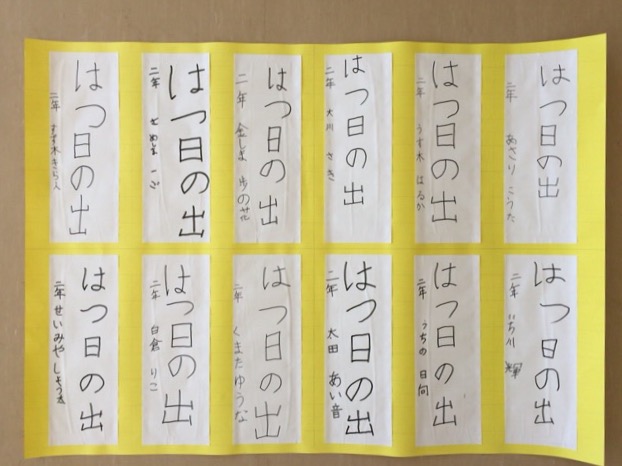 はつ日の出
二年 あさり こうた
はつ日の出
二年 うす木 はるか
はつ日の出
二年 大川 さき
はつ日の出
二年 金しま 歩のせ
はつ日の出
二年
はつ日の出
二年 すず木 きら人
はつ日の出
二年 いち川 輝
はつ日の出
二年 うちの 日向
はつ日の出
二年 太田 あい音
はつ日の出
二年 くまた ゆうな
はつ日の出
二年 白倉 りこ
はつ日の出
二年 せいみや しょうま